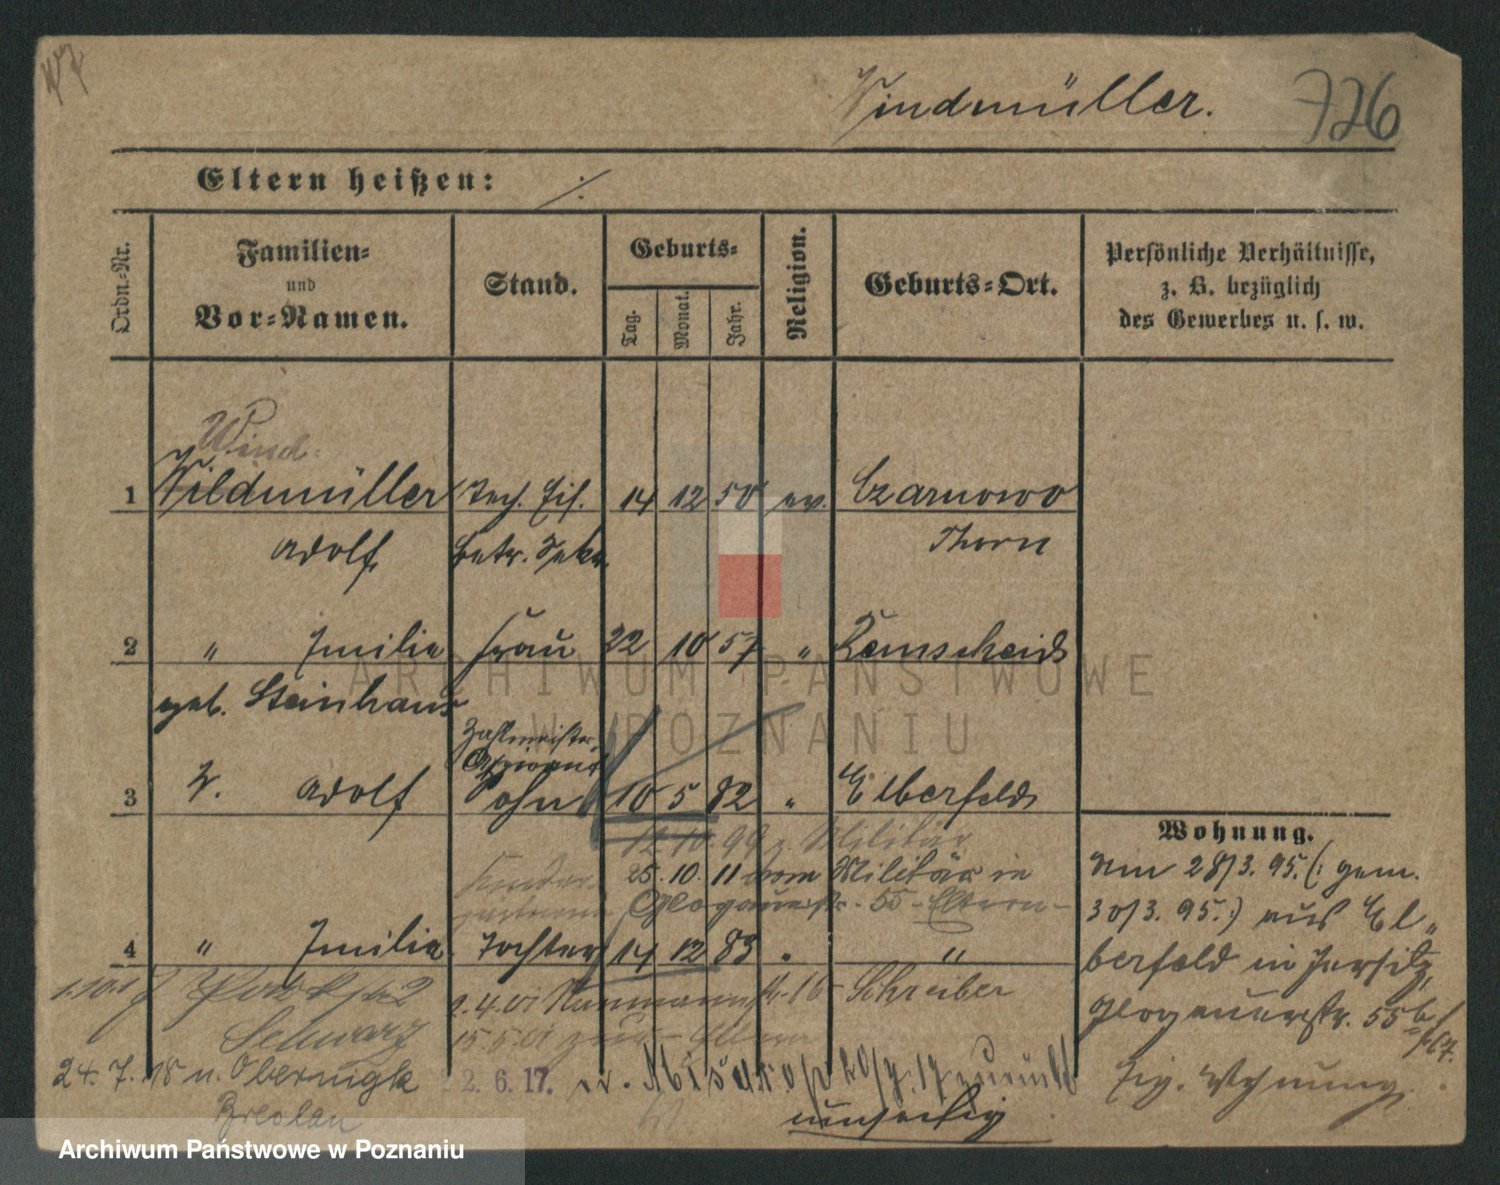 Windmüller.
726
Eltern heißen: ./.
Ordn.-Nr.
Familien-
und
Vor-Namen.
Stand.
Geburts-
Tag.
Monat.
Jahr.
Religion.
Geburts-Ort.
Persönliche Verhältnisse,
z. B. bezüglich
des Gewerbes u. s. w.
Wind-
1 Wildmüller 14 12 50 ev. Czarnowo
Adolf, Betr. Sekr. Thorn
2 " Emilie Frau 22 10 57 " Remscheid
geb. Steinhaus
Zahlmeister-
Aspirant
3 Adolf Sohn 10 5 82 " Elberfeld
12.10.99 z. Militär
25.10.11 vom Militär in
Glogauerstr. 55 - Eltern -
4 " Emilie Tochter 14 12 83 " "
Wohnung.
Am 28/3.95.(: gem.
30/3.95.:) aus El-
berfeld in Jersitz,
Glogauerstr. 55
Eig. Wohnung
2.4.01 Naumannstr. 16 Schreiber
15.5.01 zu Eltern
Schwarz
24.7.18 n. Obernigk
Breslau
2.6.17. zurück
umseitig
ARCHIWUM PAŃSTWOWE
W POZNANIU
Archiwum Państwowe w Poznaniu